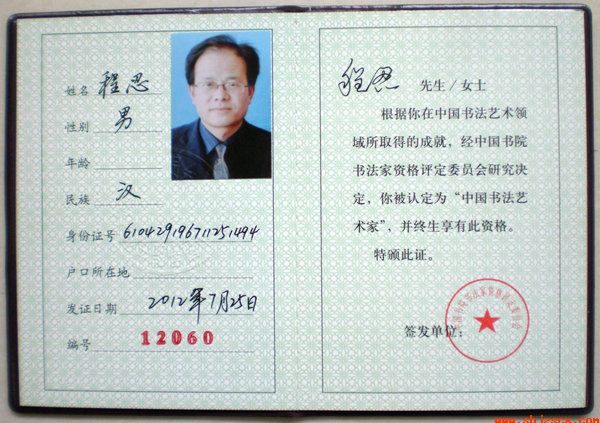 姓名 程忍
性别 男
年龄
民族 汉
身份证号 610429196711251494
户口所在地
发证日期 2012年7月25日
编号 12060
程忍 先生/女士
根据你在中国书法艺术领
域所取得的成就，经中国书院
书法家资格评定委员会研究决
定，你被认定为“中国书法艺
术家”，并终生享有此资格。
特颁此证。
签发单位：
中国书院书法家资格评定委员会